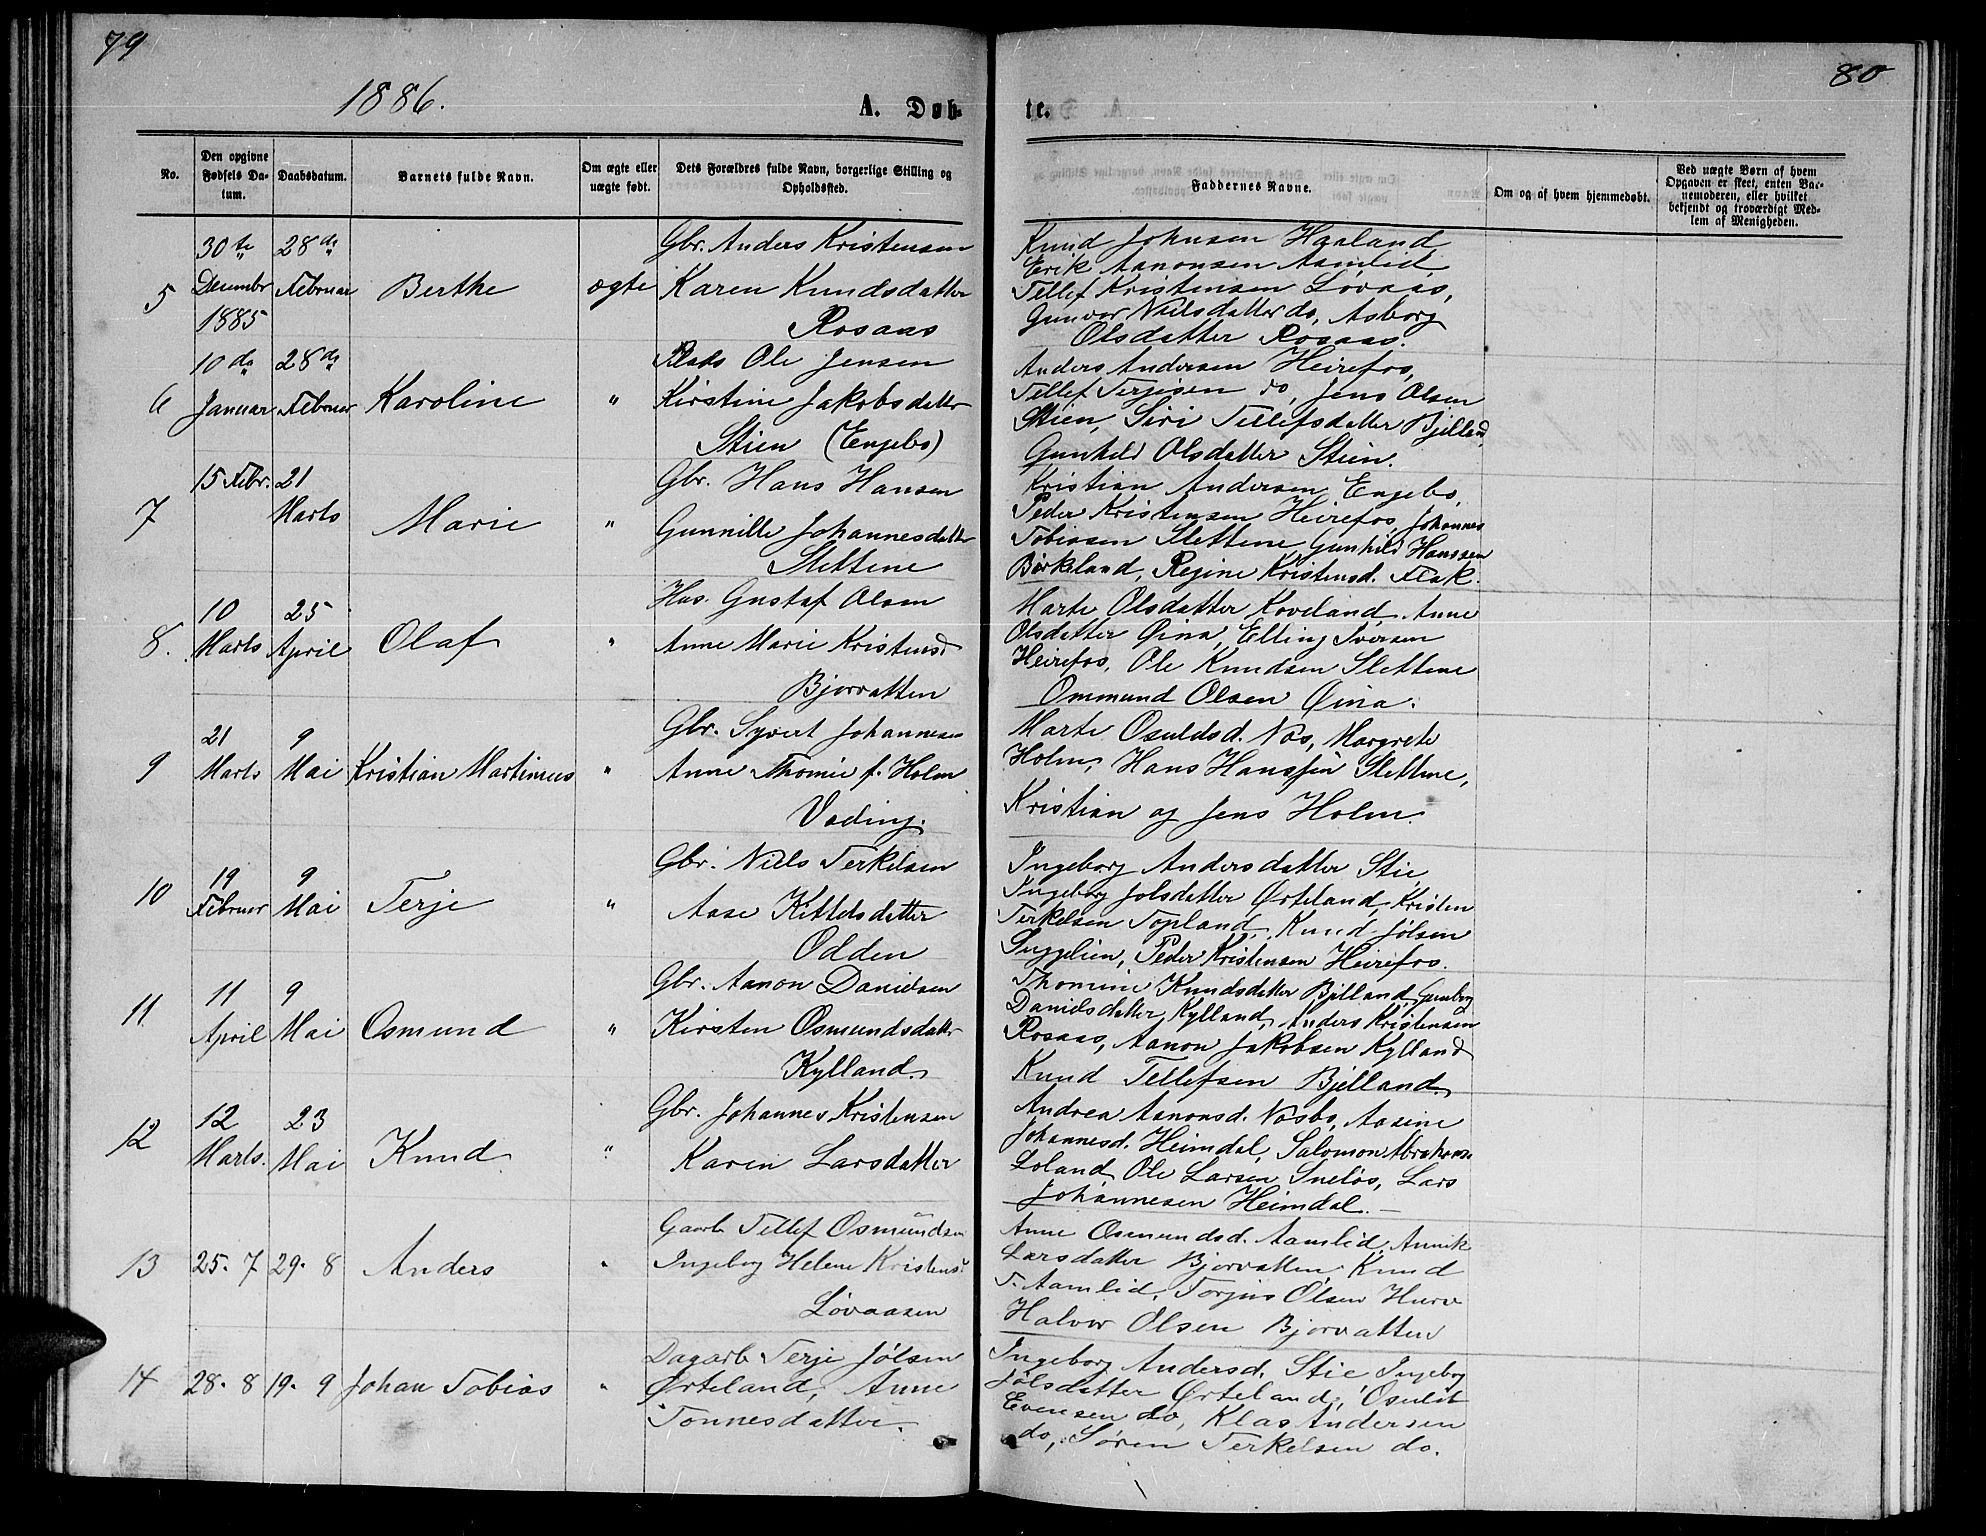 79
80
1886.
A. Døb-
te.
No.
Den opgivne Fødsels Da-
tum.
Daabsdatum.
Barnets fulde Navn.
Om ægte eller
uægte født.
Dets Forældres fulde Navn, borgerlige Stilling og
Opholdssted.
Faddernes Navne.
Om og af hvem hjemmedøbt.
Ved uægte Børn af hvem
Opgaven er skeet, enten Bar-
nemoderen, eller hvilket
bekjendt og troværdigt Med-
lem af Menigheden.
5
30te
Decembr
1885
28de
Februar
Berthe
ægte
Gbr. Anders Kristensen
Karen Knudsdatter
Rosaas
Knud Johnsen Haaland
Erik Aanonsen Aamlid
Tellef Kristensen Løvaas,
Gunvor Nielsdatter do, Asborg
Olsdatter Rosaas.
6
10de
Januar
28de
Februar
Karoline
"
Plads Ole Jensen
Kirstine Jakobsdatter
Stien (Engebo)
Anders Andersen Heirefos,
Tellef Terjesen do, Jens Olsen
Stien, Siri Tellefsdatter Bjelland
Gunhild Olsdatter Stien.
7
15 Febr.
21
Marts
Marie
"
Gbr. Hans Hansen
Gunnille Johannesdatter
Slettene
Kristian Andersen Engebo,
Peder Kristensen Heirefos, Johannes
Tobiasen Slettene Gunhild Hanssen
Birkeland, Regine Kristensd. Flak.
8.
10
Marts
25
April
Olaf
"
Hus. Gustaf Olsen
Anne Marie Kristensd
Bjorvatten
Marte Olsdatter Koveland, Anne
Olsdatter Øina, Elling Iversen
Heirefos, Ole Knudsen Slettene
Ommund Olsen Øina.
9
21
Marts
9
Mai
Kristian Martinius
"
Gbr. Syvert Johannesen
Anne Thomie f. Holm
Vading.
Marte Osuldsd. Nås, Margrete
Holm, Hans Hanssen Slettene,
Kristian og Jens Holm.
10
19
Februar
9
Mai
Terje
"
Gbr. Niels Terkelsen
Aase Kittelsdatter
Odden
Ingeborg Andersdatter Stie
Ingeborg Jolsdatter Ørteland, Kristen
Terkelsen Topland, Knud Jølsen
Suggelien, Peder Kristensen Heirefos.
11
11
April
9
Mai
Osmund
"
Gbr. Aanon Danielsen
Kirsten Osmundsdatter
Kylland
Thomine Knudsdatter Bjelland, Gunborg
Danielsdatter Kylland, Anders Kristensen
Rosaas, Aanon Jakobsen Kylland
Knud Tellefsen Bjelland
12
12
Marts.
23
Mai
Knud
"
Gbr. Johannes Kristensen
Karen Larsdatter
Andrea Aanonsd. Nåsbo, Aasine
Johannesd. Heimdal, Salomon Abrahams
Loland Ole Larsen Sneløs, Lars
Johannesen Heimdal.
13
25. 7
29. 8
Anders
"
Gaarb. Tellef Osmundsen
Ingeborg Helene Kristensd
Løvaasen
Anne Osmundsd. Aamlid, Annik
Larsdatter Bjorvatten Knud
T. Aamlid, Torjus Olsen Hurv
Halvor Olsen Bjorvatten
14
28. 8
19. 9
Johan Tobias
"
Dagarb Terje Jólsen
Ørteland, Anne
Tønnesdatter.
Ingeborg Andersd. Stie Ingeborg
Jólsdatter Ørteland, Osuld
Evensen do, Klas Andersen
do, Søren Terkelsen do.